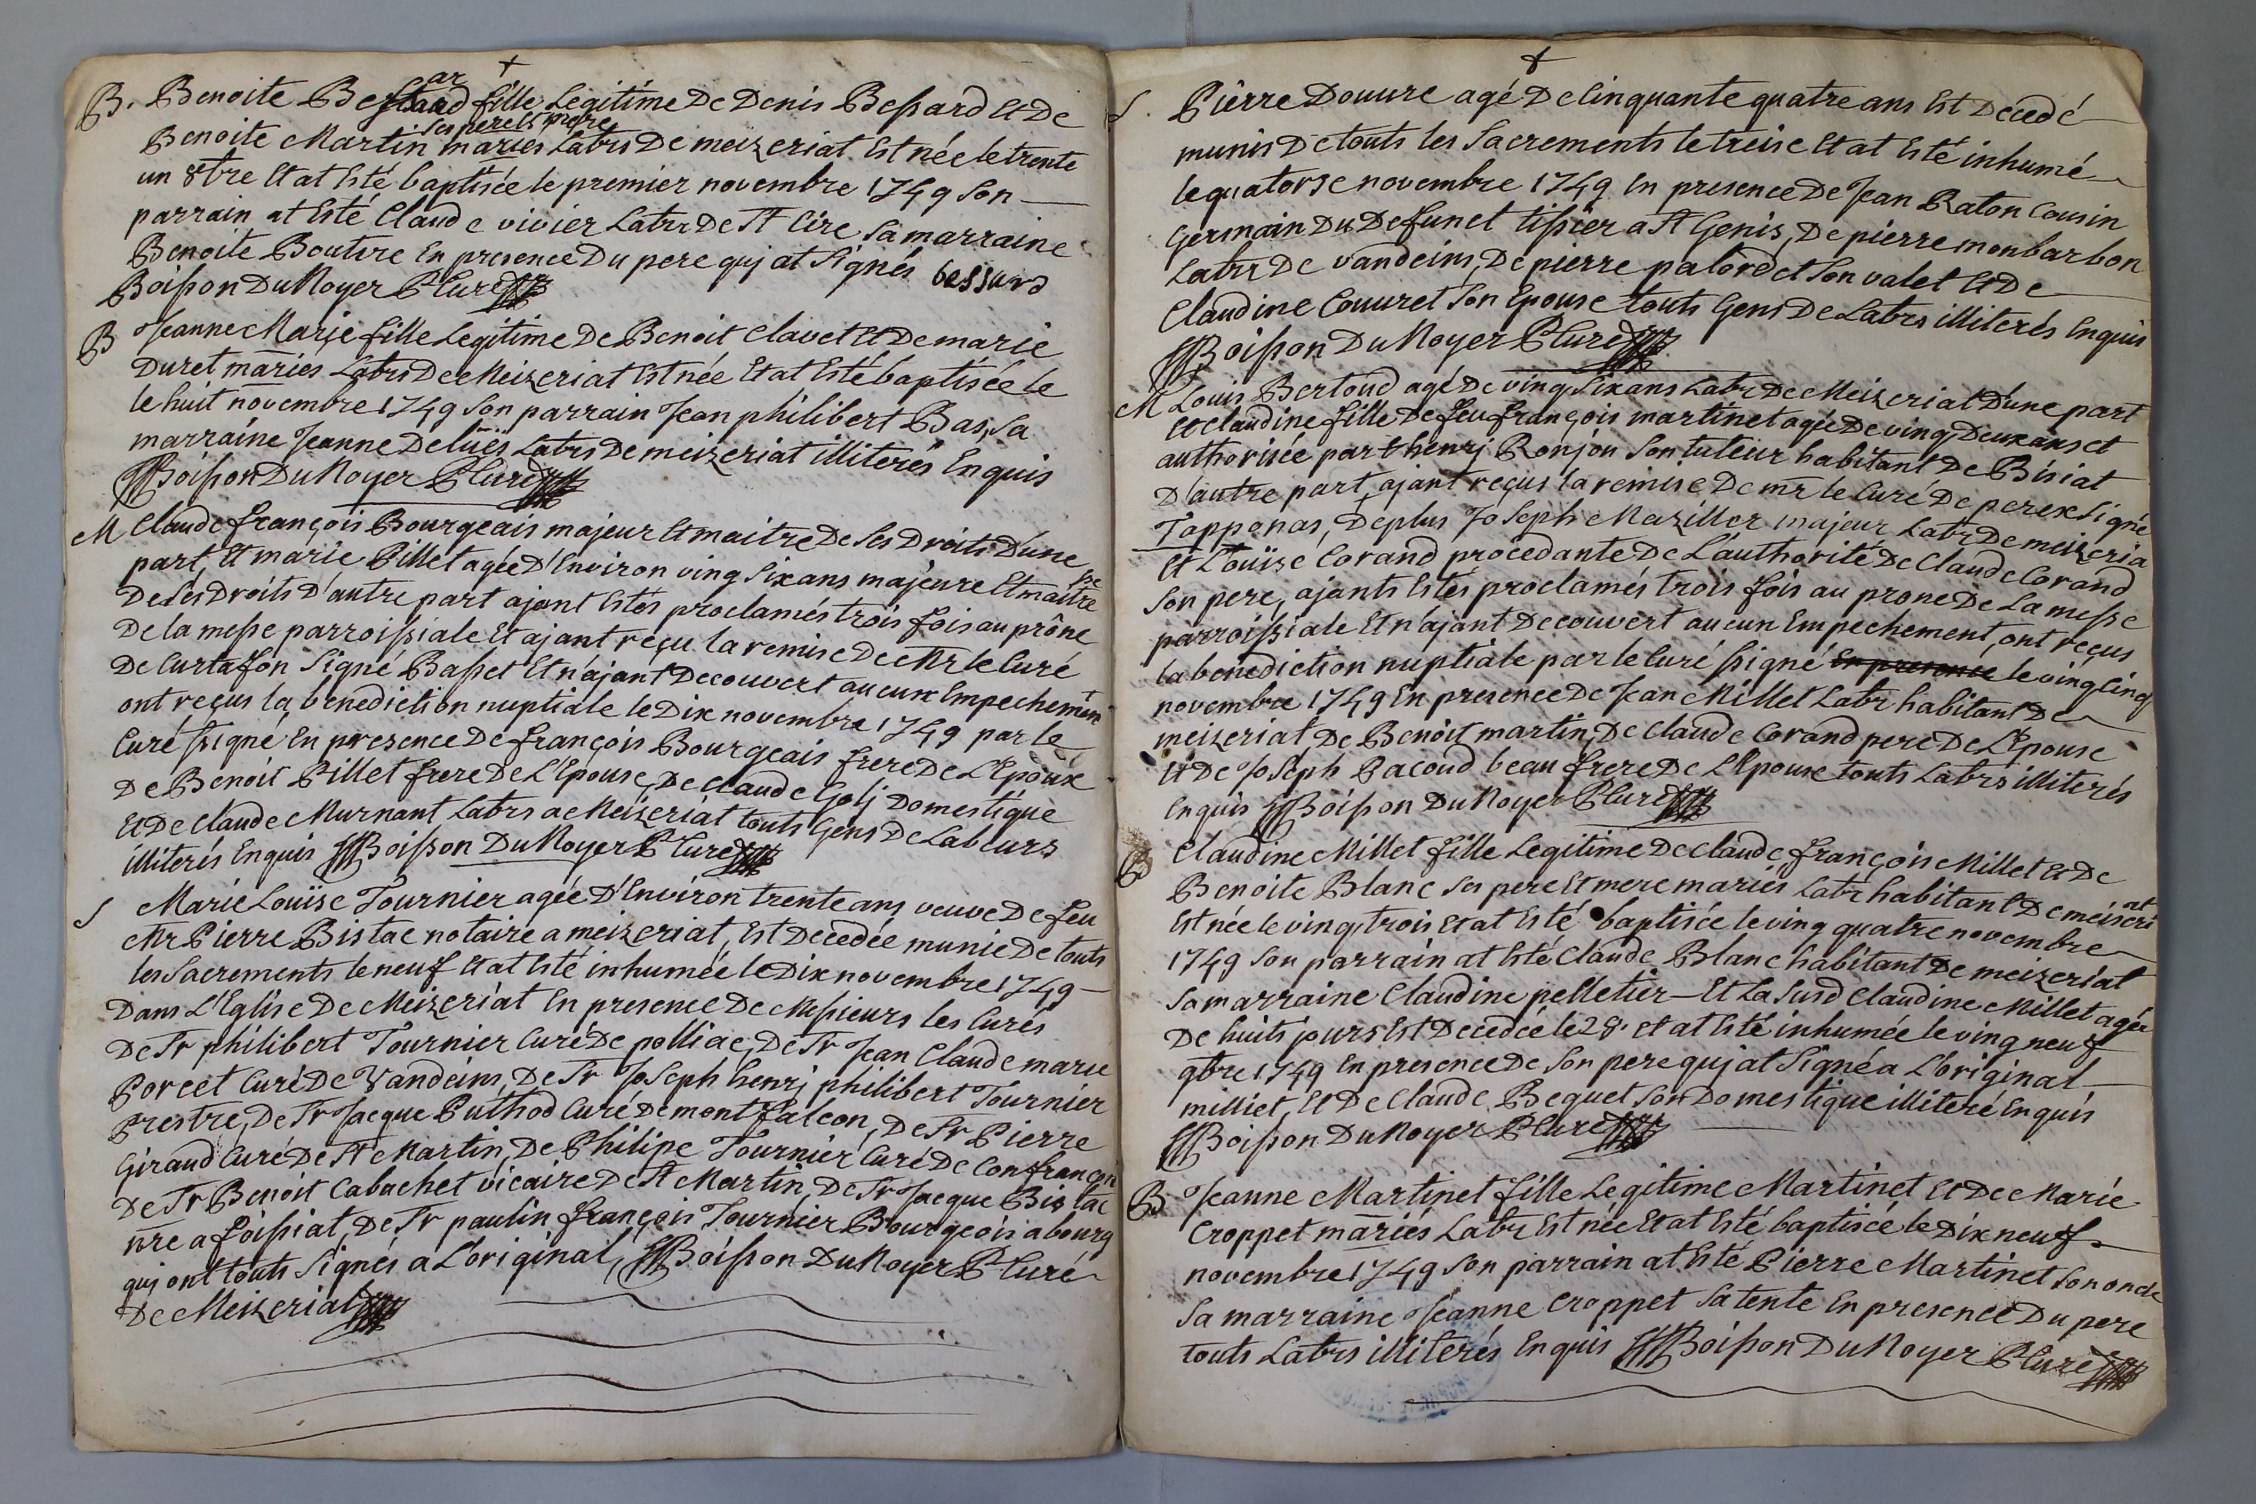 +
ar
B. Benoite Bessard fille Legitime De Denis Bessard Et De
ses pere et mere
Benoite Martin mariés Labrs De meizeriat Est née le trente
un 8bre Et at Esté baptisée le premier novembre 1749 son
parrain at Esté Claude vivier Labrr De St Cire sa marraine
Benoite Bouture En presence Du pere quj at Signés bessard
Boisson Du Noyer P Curé
B Jeanne Marie fille Legitime De Benoit Clavet Et De marie
Duret mariés Labrs De Meizeriat Est née Et at Esté baptisée le
le huit novembre 1749 son parrain Jean philibert Bas, sa
marraine Jeanne Deliiës Labrs De meizeriat illiterés Enquis
Boisson Du Noyer P Curé
M Claude françois Bourgeais majeur Et maitre De ses Droits D'une
part, Et marie Pillet agée D'Environ ving six ans majeure Et maitre
sse
De ses Droits D'autre part ajant Estés proclamés trois fois au prône
De la messe parroissiale Et ajant reçu la remise De Mr le Curé
De Curtafon Signé Basset Et n'ajant Decouvert aucun Empechemen
ont reçus la bénediction nuptiale le Dix novembre 1749 par le
Curé ssigné En presence De françois Bourgeais frere De L'Epoux
De Benoit Pillet frere De L'Epouse, De Claude Golj Domestique
Et De Claude Murnant Labrs a Meizeriat touts Gens De Labeurs
illiterés Enquis Boisson Du Noyer P Curé
S Marie Louïse Tournier agée D'Environ trente ans veuve De feu
Mr Pierre Bistac notaire a meizeriat, Est Decedée munie De touts
les Sacrements le neuf Et at Esté inhumée le Dix novembre 1749
Dans L'Eglise De Meizeriat En presence De Messieurs les Curés
De Sr philibert Tournier Curé De polliac, De Sr Jean Claude marie
Porcet Curé De Vandeins, De Sr Joseph henrj philibert Tournier
Prestre, De Sr Jacque Puthod Curé De montfalcon, De Sr Pierre
Giraud Curé De St Martin, De Philipe Tournier Curé De Confrançon
De Sr Benoit Cabuchet vicaire De St Martin, De Sr Jacque Bistac
nre a foissiat, De Sr paulin françois Tournier Bourgeois a bourg
quj ont touts Signés a L'original, Boisson Du Noyer P Curé
De Meizeriat
+
S. Pierre Douvre agé De Cinquante quatre ans Est Decedé
munis De touts les Sacrements le treise Et at Esté inhumé
le quatorse novembre 1749 En presence De Jean Raton Cousin
Germain Du Defunct tissier a St Genis, De pierre monbarbon
Labrr De vandeins, De pierre palord et Son valet Et De
Claudine Couuret Son Epouse touts Gens De Labrs illiterés Enquis
Boisson Du Noyer P Curé
M Louis Bertoud agé De ving Six ans Labr De Meizeriat D'une part
Et Claudine fille De feu françois martinet agée De ving Deux ans et
authorisée par henrj Ronjon Son tuteur habitant De Bisiat
D'autre part, ajant reçus la remise De mr le Curé De perex Signé
Tapponas, De plus Joseph Maziller majeur Labr De meizeria
Et Loüise Corand procedante De L'authorité De Claude Corand
Son pere, ajants Estés proclamés trois fois au prone De La messe
parroissiale Et n'ajant Decouvert aucun Empechement, ont reçus
la benediction nuptiale par le Curé ssigné En presence le ving cinq
novembre 1749 En presence De Jean Millet Labr habitant De
meizeriat, De Benoit martin, De Claude Corand pere De L'Epouse
Et De Joseph Pacoud beau frere De L'Epouse touts Labrs illiterés
Enquis Boisson Du Noyer P Curé
B Claudine Millet fille Legitime De Claude françois Millet Et De
Benoite Blanc ses pere Et mere mariés Labr habitant De meiseri
at
Est née le ving trois Et at Esté baptisée le ving quatre novembre
1749 Son parrain at Esté Claude Blanc habitant De meizeriat
Sa marraine Claudine pelletier — Et La Susd Claudine Millet agée
De huits jours Est Decedée le 28. et at Esté inhumée le ving neuf
9bre 1749 En presence De Son pere quj at Signé a L'original
milliet, Et De Claude Bequet Son Domestique illiteré Enquis
Boisson Du Noyer P Curé
B Jeanne Martinet fille Legitime Martinet Et De Marie
Croppet mariés Labr Est née Et at Esté baptisée le Dix neuf
novembre 1749 Son parrain at Esté Pierre Martinet Son oncle
Sa marraine Jeanne Croppet Sa tente En presence Du pere
touts Labrs illiterés Enquis Boisson Du Noyer P Curé